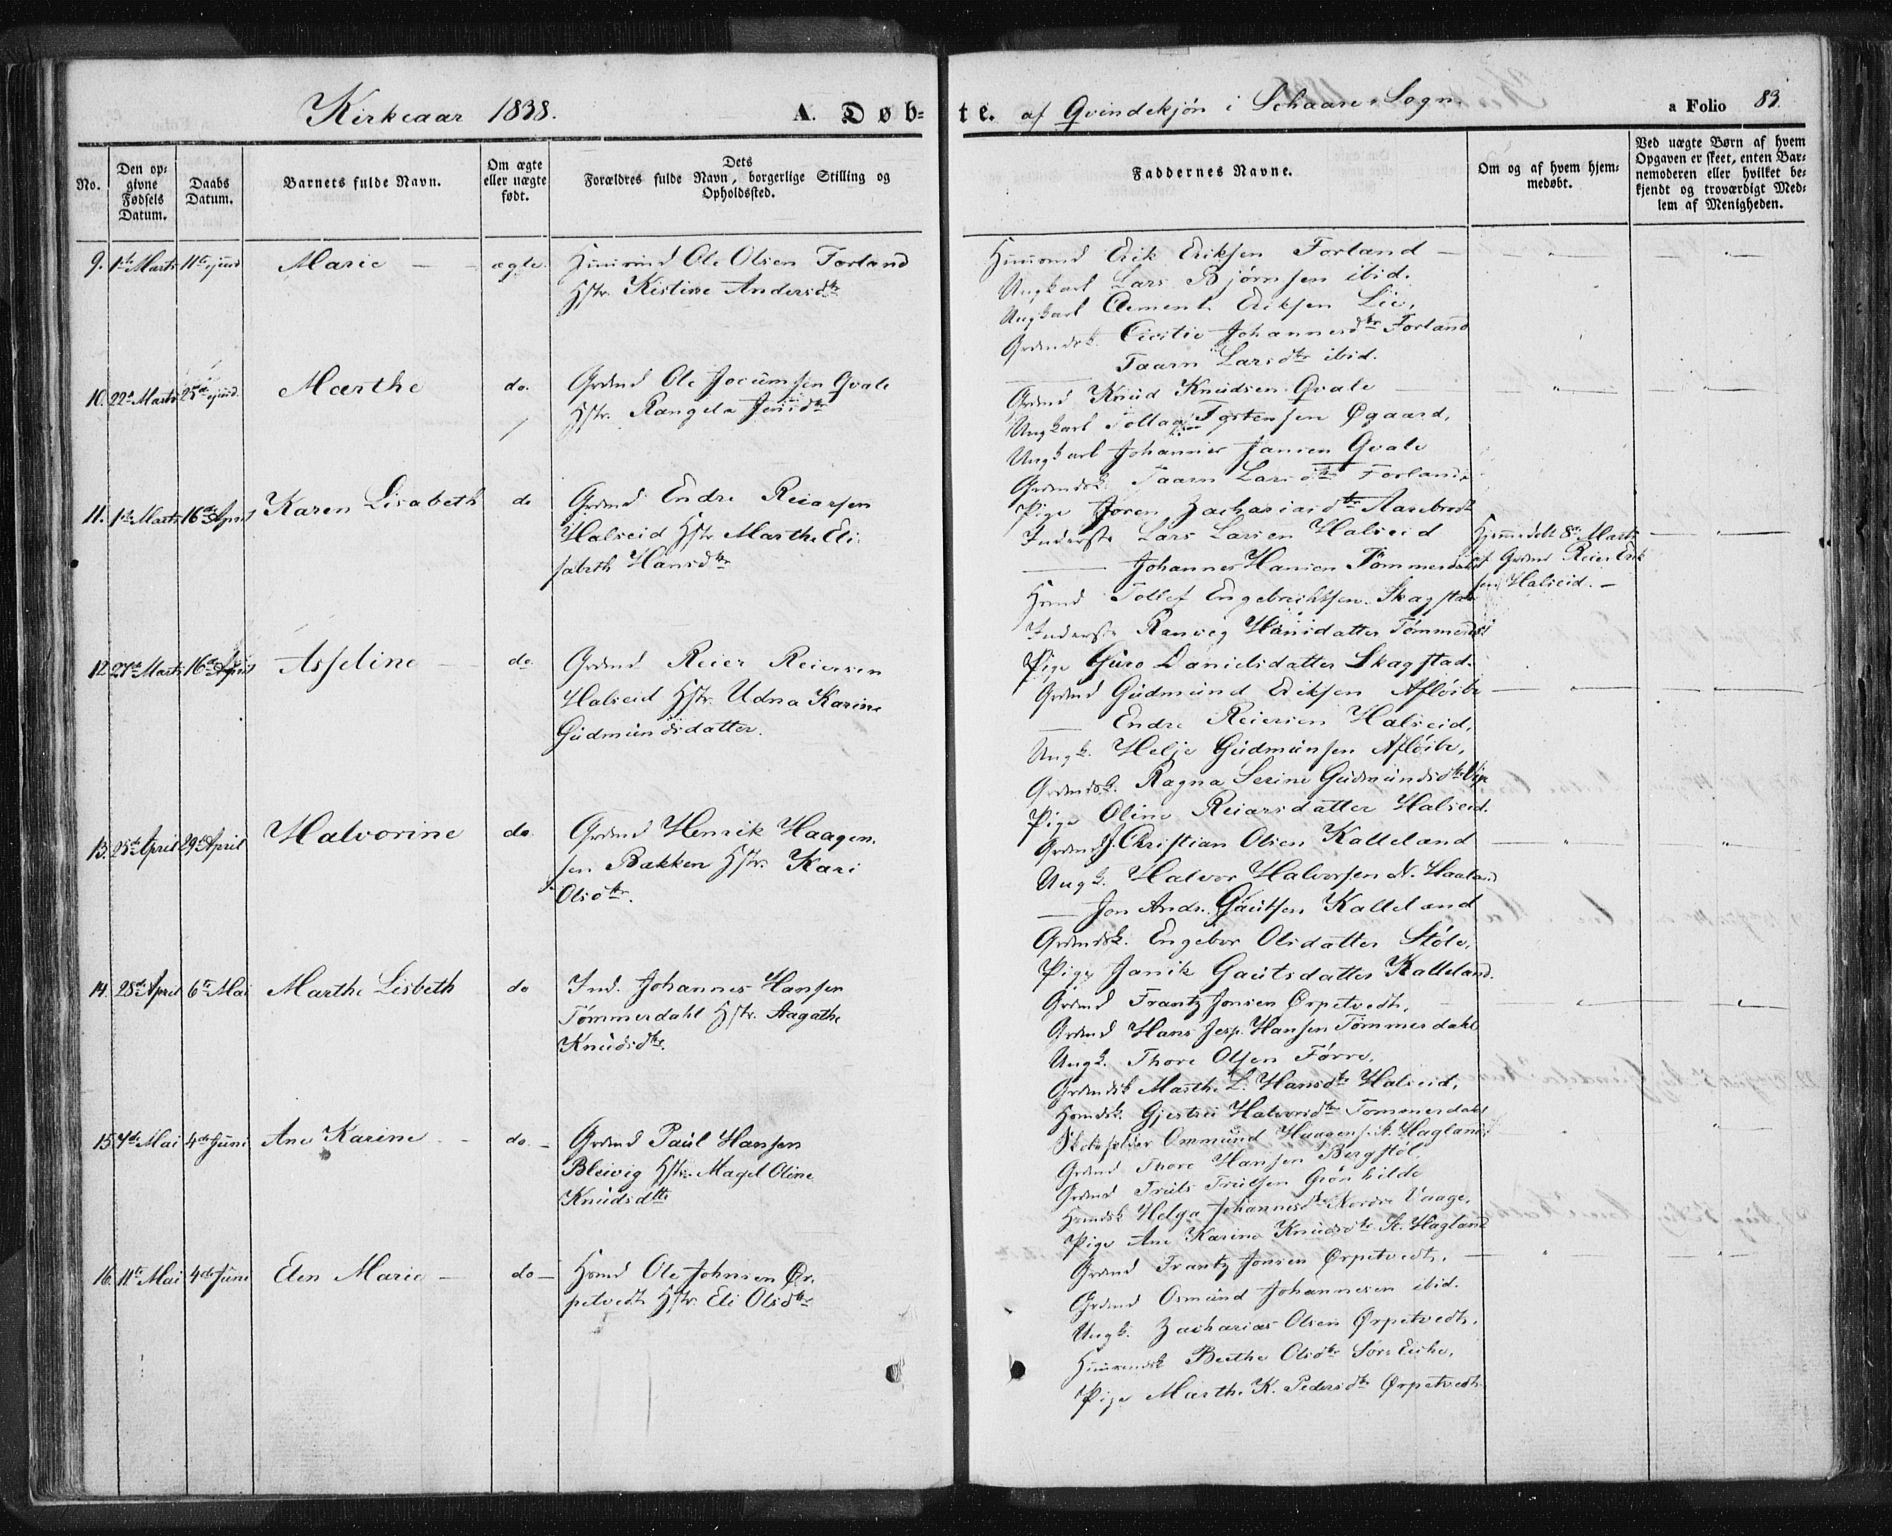 Kirkeaar 1838. A. Døb-
te. af Qvindekjøn i Schaare Sogn. a Folio 83.
No.
Den op-
givne
Fødsels
Datum.
Daabs
Datum.
Barnets fulde Navn.
Om ægte
eller uægte
født.
Dets
Forældres fulde Navn, borgerlige Stilling og
Opholdssted.
Faddernes Navne.
Om og af hvem hjem-
medøbt.
Ved uægte Børn af hvem
Opgaven er skeet, enten Bar-
nemoderen eller hvilket be-
kjendt og troværdigt Med-
lem af Menigheden.
9. 1ste Marts 11te ejusd Marie ægte Huusmd Ole Olsen Forland
Hstr. Kistine Andersdtr
Huusmd Erik Eriksen Forland
Ungkarl Lars Bjørnsen ibid.
Ungkarl Clement Eriksen Lie,
Grdmdsk. Johannesdtr Forland
Taarn Larsdtr ibid.
10. 22de Marts 25de ejusd. Marthe do. Grdmd Ole Jocumsen Qvale
Hstr. Rangela Jensdtr
Grdmd Knud Knudsen Qvale
Ungkarl Tostensen Øgaard,
Ungkarl Johannes Jansen Qvale
Grdmdsk. Taarn Larsdtr Forland
Pige Joren Zachariasdtr Aarebrodt
11. 1ste Marts 16de April Karen Lisabeth do Grdmd Endre Reiersen
Halseid Hstr Marthe Eli-
sabeth Hansdtr
Inderste Lars Larsen Halseid
Johannes Hansen Tømmerdahl
Hsmd Tollef Engebrethsen Skagstad
Inderste Ranveg Hansdatter Tømmerdl
Pige Guro Danielsdatter Skagstad.
Hjemmedøbt 8de Marts
af Grdmd Reier Erik
sen Halseid.
12. 27de Marts 16de April Asseline do. Grdmd Reier Reiersen
Halseid Hstr. Udna Karine
Gudmundsdatter.
Grdmd Gudmund Eriksen Afløibe
Endre Reiersen Halseid,
Ungk. Helje Gudmunsen Afløibe,
Grdmdsk. Ragna Serine Gudmundsdtr
Pige Oline Reiarsdatter Halseid.
13. 25de April 29de April Halvorine do. Grdmd Henrik Haagen-
sen Bakken Hstr. Kari
Olsdtr.
Grdmd J. Christian Olsen Kalleland
Ungk. Halvor Halvorsen N. Haaland
Jon Andr. Gautsen Kalleland
Grdmdsk. Engebor Olsdatter Støle,
Pige Janik Gautsdatter Kalleland.
14. 28de April 6te Mai Marthe Lisbeth do Ind. Johannes Hansen
Tømmerdahl Hstr. Aagathe
Knudsdtr.
Grdmd Frantz Jonsen Ørpetvedt,
Grdmd Hans Jesp. Hansen Tømmerdahl
Ungk. Thore Olsen Førre,
Grdmdsk Marthe L. Hansdtr Halseid,
Hsmdsk. Gjertru Halvorsdtr Tømmerdahl
15. 4de Mai 4de Juni Ane Karine do. Grdmd Paul Hansen
Bleivig Hstr. Magel Oline
Knudsdtr
Skoleholder Ommund Haagens. S. Hagland
Grdmd Thore Hansen Bergstøl,
Grdmd Truls Trulsen Grønhilde
Hsmdsk Helga Johannesdtr Nordre Vaage,
Pige Ane Karine Knudsdtr S. Hagland
16. 11te Mai 4de June Elen Marie do Hsmd Ole Johnsen Ør-
petvedt Hstr. Eli Olsdtr
Grdmd Frantz Jonsen Ørpetvedt,
Grdmd Osmund Johannesen ibid.
Ungk. Zacharias Olsen Ørpetvedt,
Huusmdsk Berthe Olsdtr Søre Eiche,
Pige Marthe K. Pedersdtr Ørpetvedt